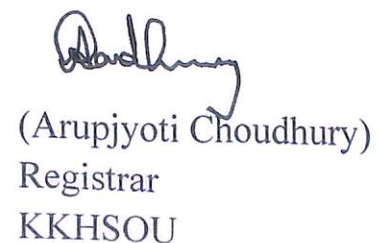 (Arupjyoti Choudhury)
Registrar
KKHSOU